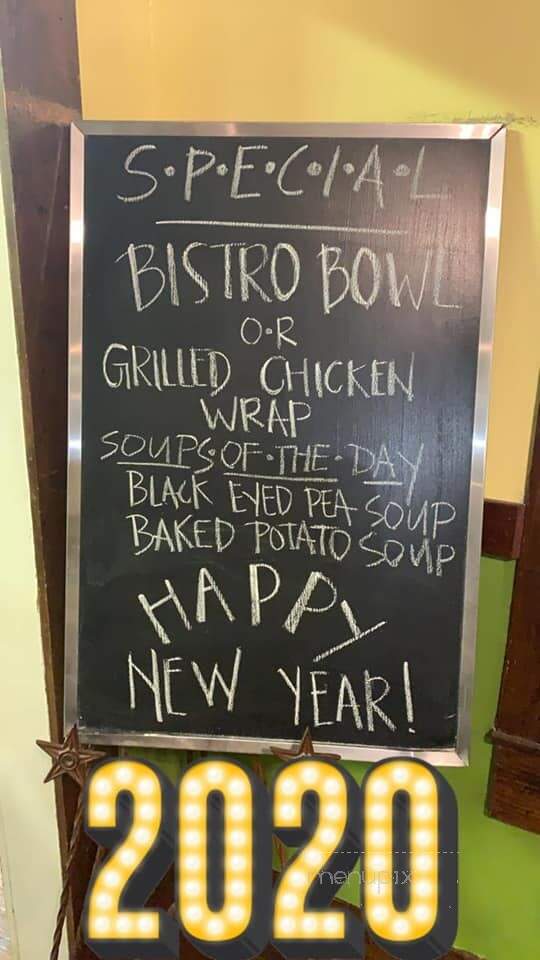 S•P•E•C•I•A•L
BISTRO BOWL
O•R
GRILLED CHICKEN
WRAP
SOUPS•OF•THE•DAY
BLACK EYED PEA SOUP
BAKED POTATO SOUP
HAPPY
NEW YEAR!
2020
menupix